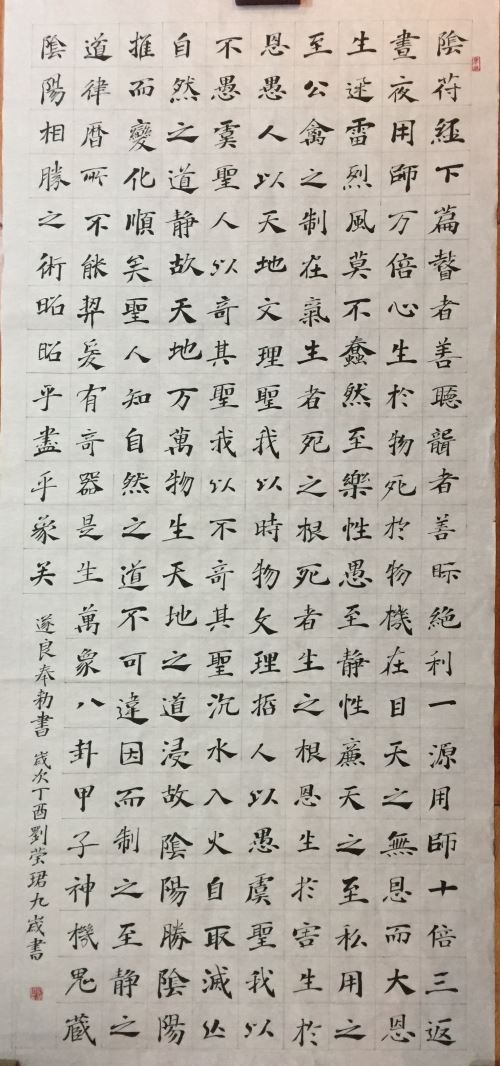 陰苻經下篇瞽者善聽聾者善眎絕利一源用師十倍三返
晝夜用師万倍心生於物死於物機在目天之無恩而大恩
生迅雷烈風莫不蠢然至樂性愚至静性廉天之至私用之
至公禽之制在氣生者死之根死者生之根恩生於害生於
恩愚人以天地文理聖我以時物文理哲人以愚虞聖我以
不愚虞聖人以奇其聖我以不奇其聖沉水入火自取滅亡
自然之道静故天地万萬物生天地之道浸故陰陽勝陰陽
推而變化順矣聖人知自然之道不可違因而制之至静之
道律曆所不能契爰有奇器是生萬象八卦甲子神機鬼藏
陰陽相勝之術昭昭乎盡乎象矣 遂良奉勅書 歲次丁酉劉瑩珺九歲書